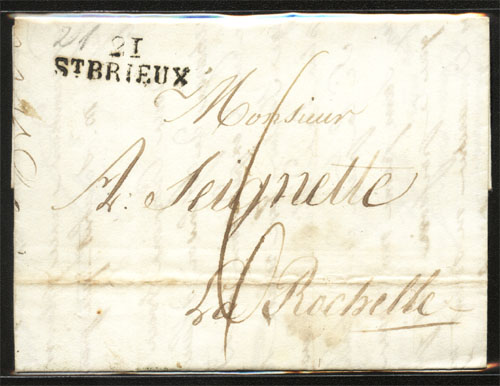 21 21
STBRIEUX
Monsieur
A. Seignette
La Rochelle